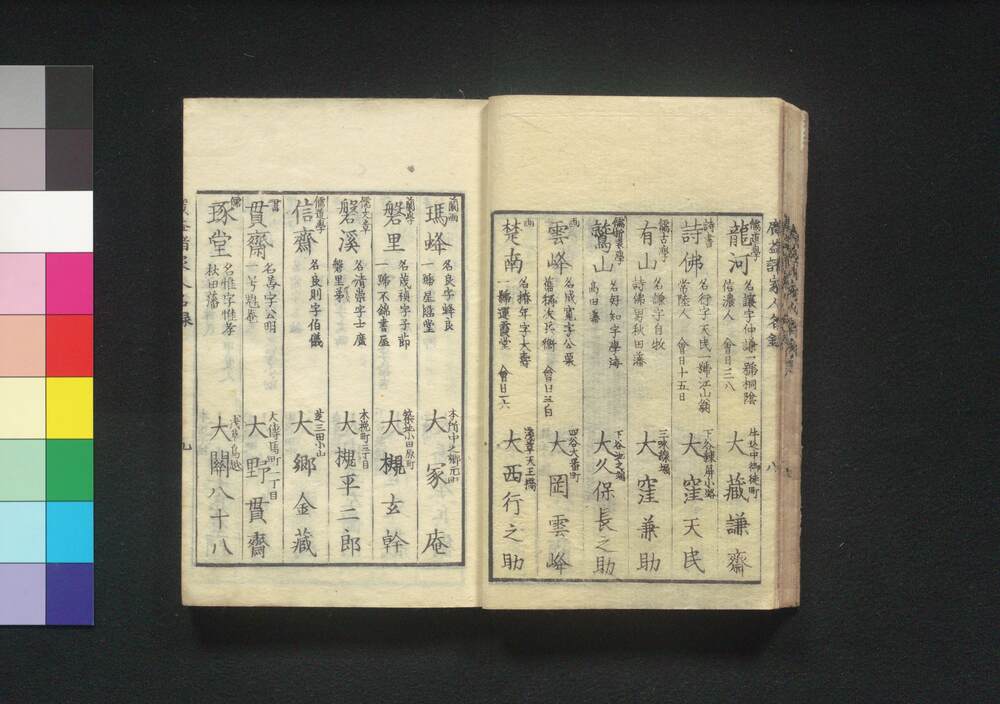 儒道學
龍河
名讓字仲謙一號桐陰
信濃人　會日三八
牛込中御徒町
大藏謙齋
詩書
詩佛
名行字天民一號江山翁
常陸人　會日十五日
下谷練屏小路
大窪天民
儒古學
有山
名謙字自牧
詩佛男秋田藩
三味線堀
大窪兼助
鷲山
名好知字學海
高田藩
下谷池之端
大久保長之助
画
雲峰
名成寬字公栗
舊稱次兵衛　會日五白
四谷大番町
大岡雲峰
画
楚南
名椿年字大壽
一號運霞堂　會日二六
淺草天王橋
大西行之助
八
蘭画
瑪蜂
名良字蜂良
一號星臨堂
本所中之郷元町
大冢庵
蘭學
磐里
名茂禎字子節
一號不錦書屋
築地小田原町
大槻玄幹
儒文章
磐溪
名清崇字士廣
磐里弟
木挽町三丁目
大槻平二郎
儒道學
信齋
名良則字伯儀
芝三田小山
大郷金藏
書
貫齋
名善字公明
一号魁庵
大傳馬町一丁目
大野貫齋
儒
琢堂
名惟孝
秋田藩
淺草鳥越
大關八十八
九